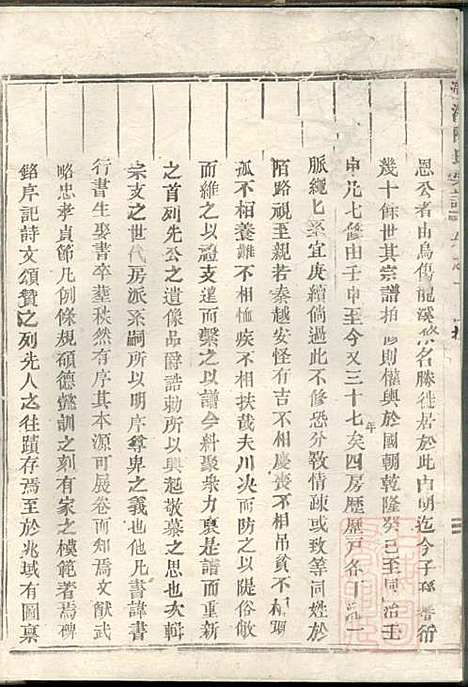 恩公者由烏傷龍溪 名勝徙居於此由明迄今子孫蕃衍
幾十餘世其宗譜 修則權輿於國朝乾隆癸巳至同治壬
申凡七修由壬申至今又三十七年矣四房歷歷戶各丁 一
脈繩繩宜庚續倘過此不修恐分散情疎或致等同姓於
陌路視至親若秦越安怪有吉不相慶喪不相弔貧不相
孤不相養難不相恤疾不相扶哉夫川決而防之以隄俗散
而維之以 支遠而繫之以譜今料聚眾力裒是譜而重新
之首列先公之遺像品爵誥勅所以興起敬慕之思也次輯
宗支之世代房派系嗣所以明序尊卑之義也他凡書諱書
行書生娶書卒葬秩然有序其本源可展卷而知焉文獻武
略忠孝貞節凡例條規碩德懿訓之刻有家之模範著焉碑
銘序記詩文頌贊之列先人之往蹟存焉至於兆域有圖稟